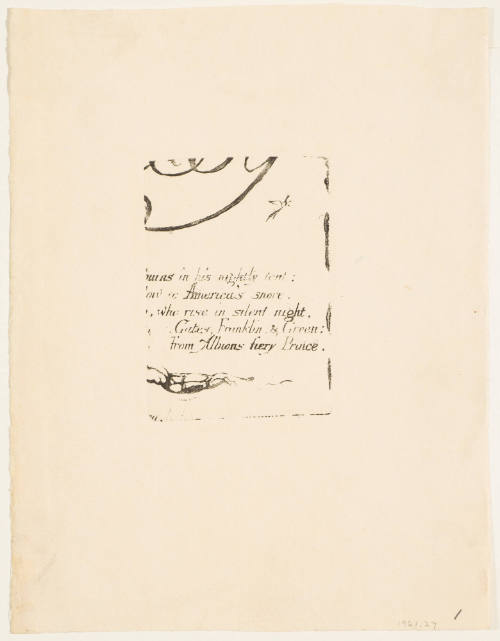 burns in his nightly tent:
low to Americas shore.
, who rise in silent night,
Gates, Franklin & Green;
From Albions fiery Prince.
1